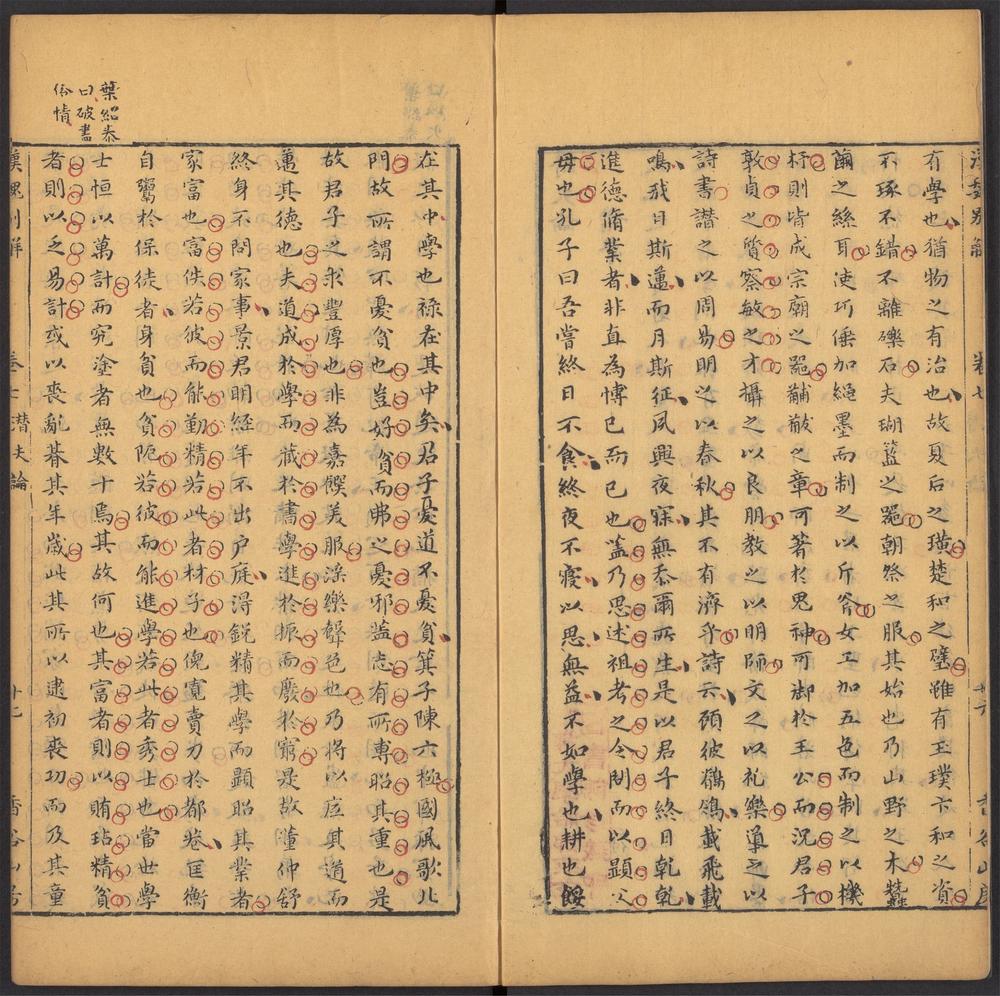 有學也猶物之有治也故夏后之璜楚和之璧雖有玉璞卞和之資
不琢不錯不離礫石夫瑚簋之噐朝祭之服其始也乃山野之木蠶
繭之絲耳使巧倕加繩墨而制之以斤斧女工加五色而制之以機
杼則皆成宗廟之噐黼黻之章可著於鬼神可御於王公而況君子
敦貞之質察敏之才攝之以良朋教之以明師文之以礼樂導之以
詩書讃之以周易明之以春秋其不有濟乎詩云顧彼鶺鴒載飛載
鳴我日斯邁而月斯征夙興夜寐無忝爾所生是以君子終日乾乾
進德脩業者非直為博已而已也盖乃思述祖考之令問而以顯父
母也孔子曰吾嘗終日不食終夜不寢以思無益不如學也耕也餒
在其中學也禄在其中矣君子憂道不憂貧箕子陳六極國風歌北
門故所謂不憂貧也豈好貧而弗之憂邪盖志有所專昭其重也是
故君子之求豐厚也非為嘉饌美服淫樂聲色也乃將以底其道而
邁其德也夫道成於學而藏於書學進於振而廢於窮是故董仲舒
終身不問家事景君明經年不出户庭得鋭精其學而顯昭其業者
家富也富佚若彼而能勤精若此者材子也倪寬賣力於都巷匡衡
自鬻於保徒者身貧也貧阨若彼而能進學若此者秀士也當世學
士恒以萬計而究塗者無數十焉其故何也其富者則以賄玷精貧
者則以乏易計或以喪亂朞其年歲此其所以逮初喪功而及其童
葉紹泰
曰破盡
俗情
卷七
潜夫論